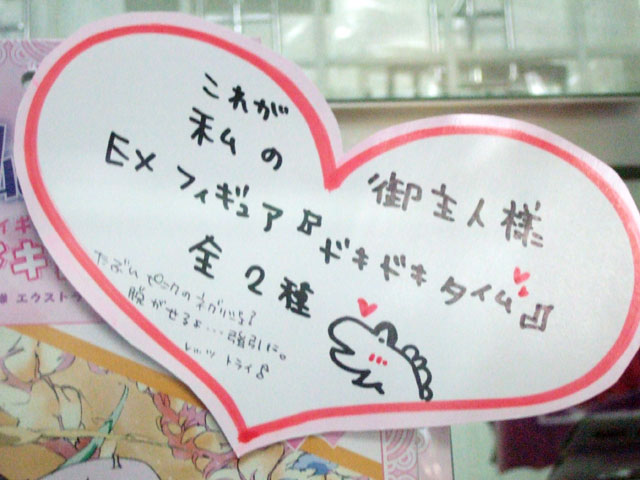 これが
私の
御主人様
EXフィギュア♪
ドキドキタイム♪
全2種
たぶんピンクのネグリジェ?
脱がせるよ…強引に。
レッツ トライ♪
エクストラ